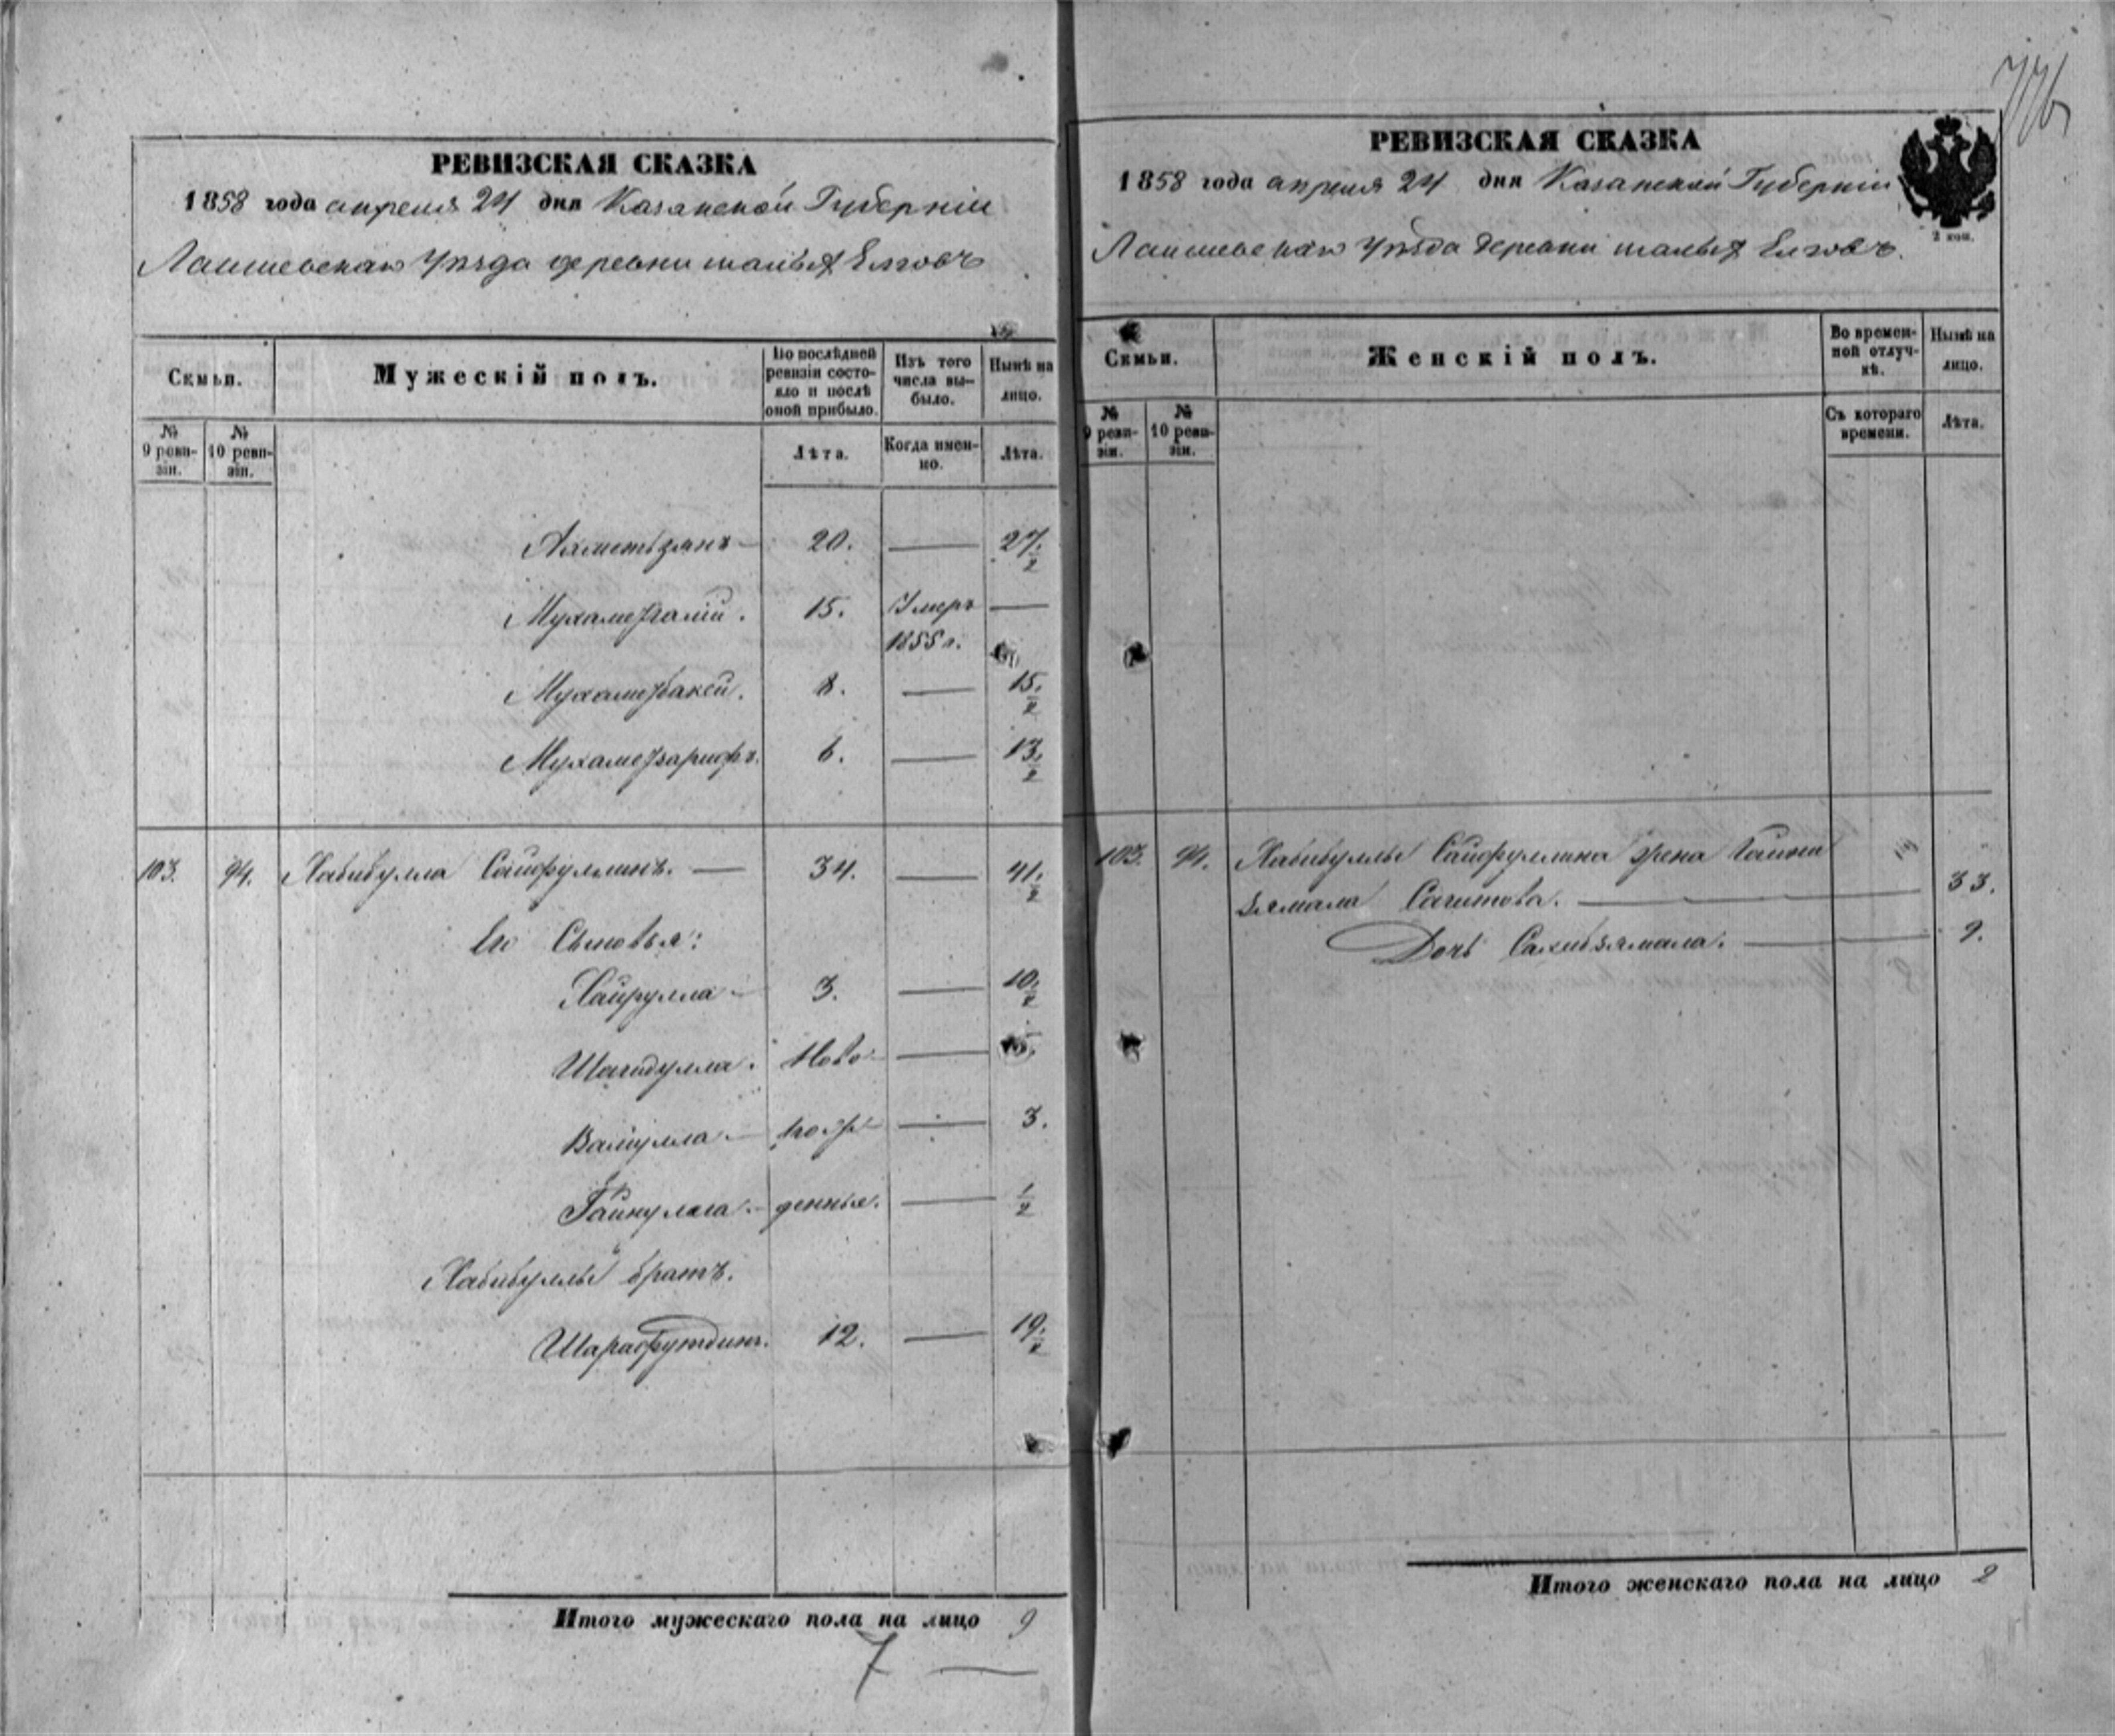 776
РЕВИЗСКАЯ СКАЗКА
1858 года апреля 24 дня Казанской Губерніи
Лаишевскаго Уѣзда деревни малыя Елговъ
Семьи.
Мужескій полъ.
По послѣдней ревизіи состояло и послѣ оной прибыло.
Изъ того числа выбыло.
Нынѣ на лицо.
№ 9 ревизіи.
№ 10 ревизіи.
Лѣта.
Когда именно.
Лѣта.
Ахметьзянъ — 20. — 27 1/2
Мухаметгалій. 15. Умеръ —
1855 г.
Мухаметбакей. 8. — 15. 1/2
Мухаметзарифъ. 6. — 13. 1/2
103. 94. Хабибулла Сайфуллинъ. — 34. — 41. 1/2
Его Сыновья:
Хайрулла — 3. — 10. 1/2
Шагидулла. Ново —
Валіулла — рож — 3.
Гайнулла. — денные. — 1/2
Хабибуллы братъ.
Шарафутдинъ. 12. — 19. 1/2
Итого мужескаго пола на лицо 9
7 —
РЕВИЗСКАЯ СКАЗКА
1858 года апреля 24 дня Казанской Губерніи
2 коп.
Лаишевскаго Уѣзда деревни малыя Елговъ.
Семьи.
Женскій полъ.
Во временной отлучкѣ.
Нынѣ на лицо.
№ 9 ревизіи.
№ 10 ревизіи.
Съ котораго времени.
Лѣта.
103. 94. Хабибуллы Сайфуллина жена
зямала Сагитова. — 33.
Дочь Сахибзямала. — 9.
Итого женскаго пола на лицо 2